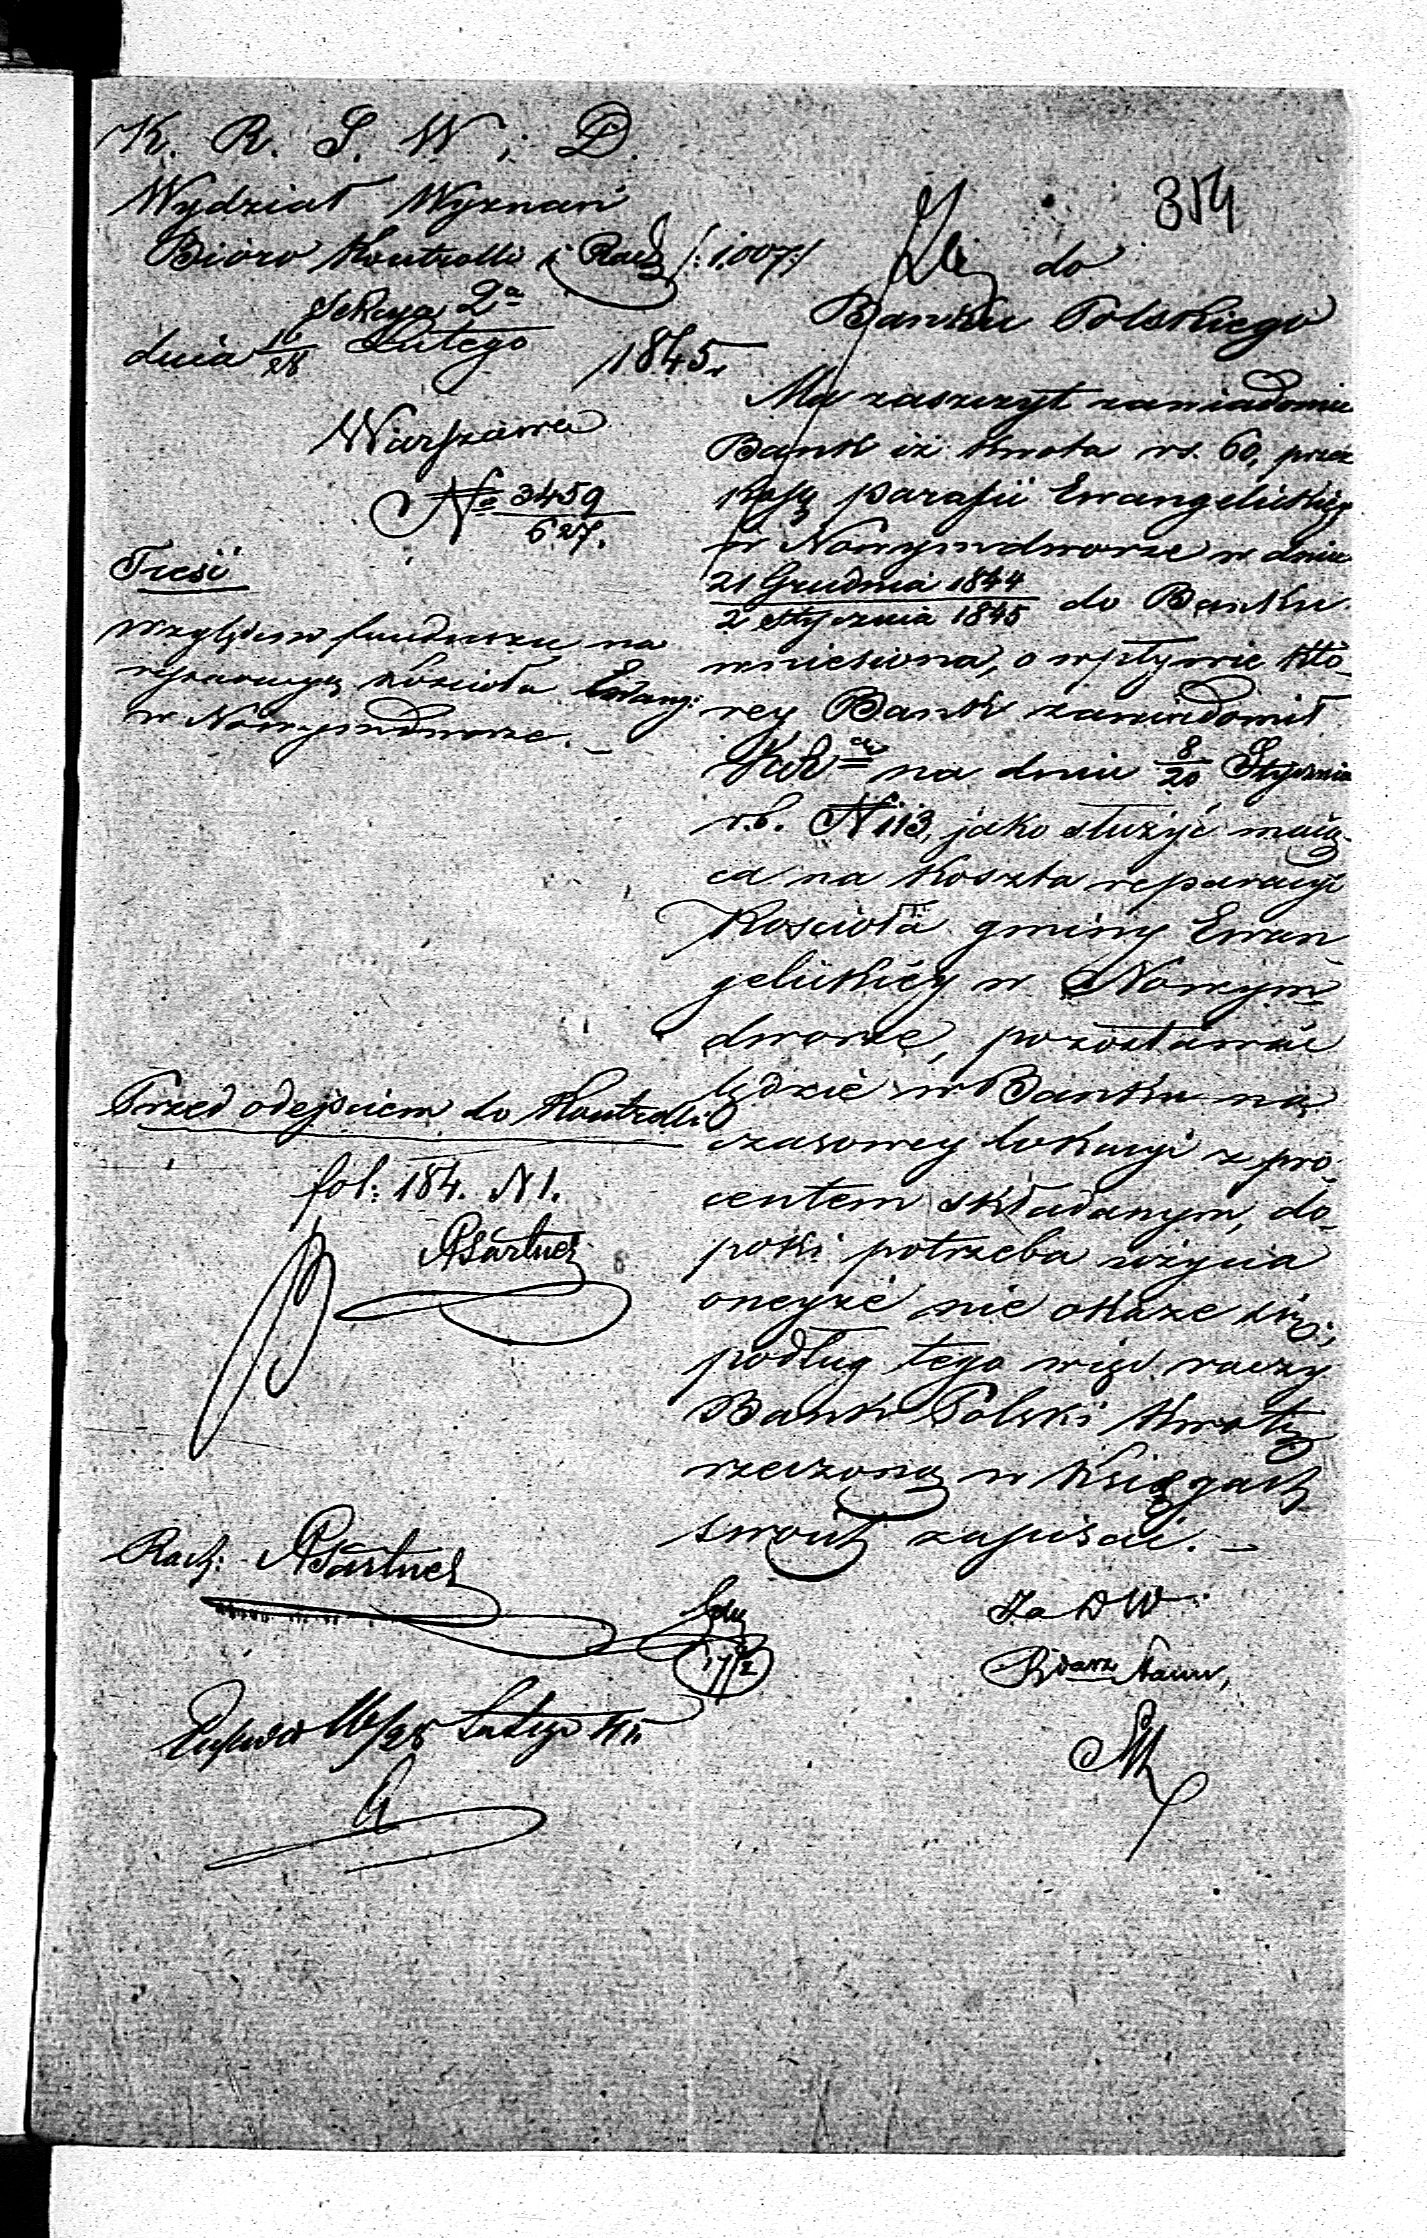 K. R. S. W. i D.
Wydział Wyznań
Bióro Kontrolli i Rach /:1.007:/
Sekcya 2ª
dnia 16/28 Lutego 1845.
Warszawa
№ 3459/627.
Treść
Względem funduszu na
reparacyą kościoła Ewang:
w Nowymdworze. –
Przed odejściem do Kontrolli
fol: 184. N 1.
Rach:
16/28 Lutego
354
do
Banku Polskiego
Ma zaszczyt zawiadomić
Bank iż kwota rs. 60, przez
Kassę parafii Ewangelickiey
w Nowymdworze w dniu
21 Grudnia 1844 / 2 Stycznia 1845 do Banku
wniesiona, o wpływie któ-
rey Bank zawiadomił
na dniu 8/20 Stycznia
r.b. N 113, jako służyć mają-
ca na koszta reparacyi
Kościoła gminy Ewan-
gelickiéy w Nowym-
dworze, pozostawać
będzie w Banku na
czasowey lokacyi z pro-
centem składanym, do-
póki potrzeba użycia
oneyże nie okaże się;
podług tego więc raczy
Bank Polski kwotę
rzeczoną w księgach
swoich zapisać. –
Za D W.